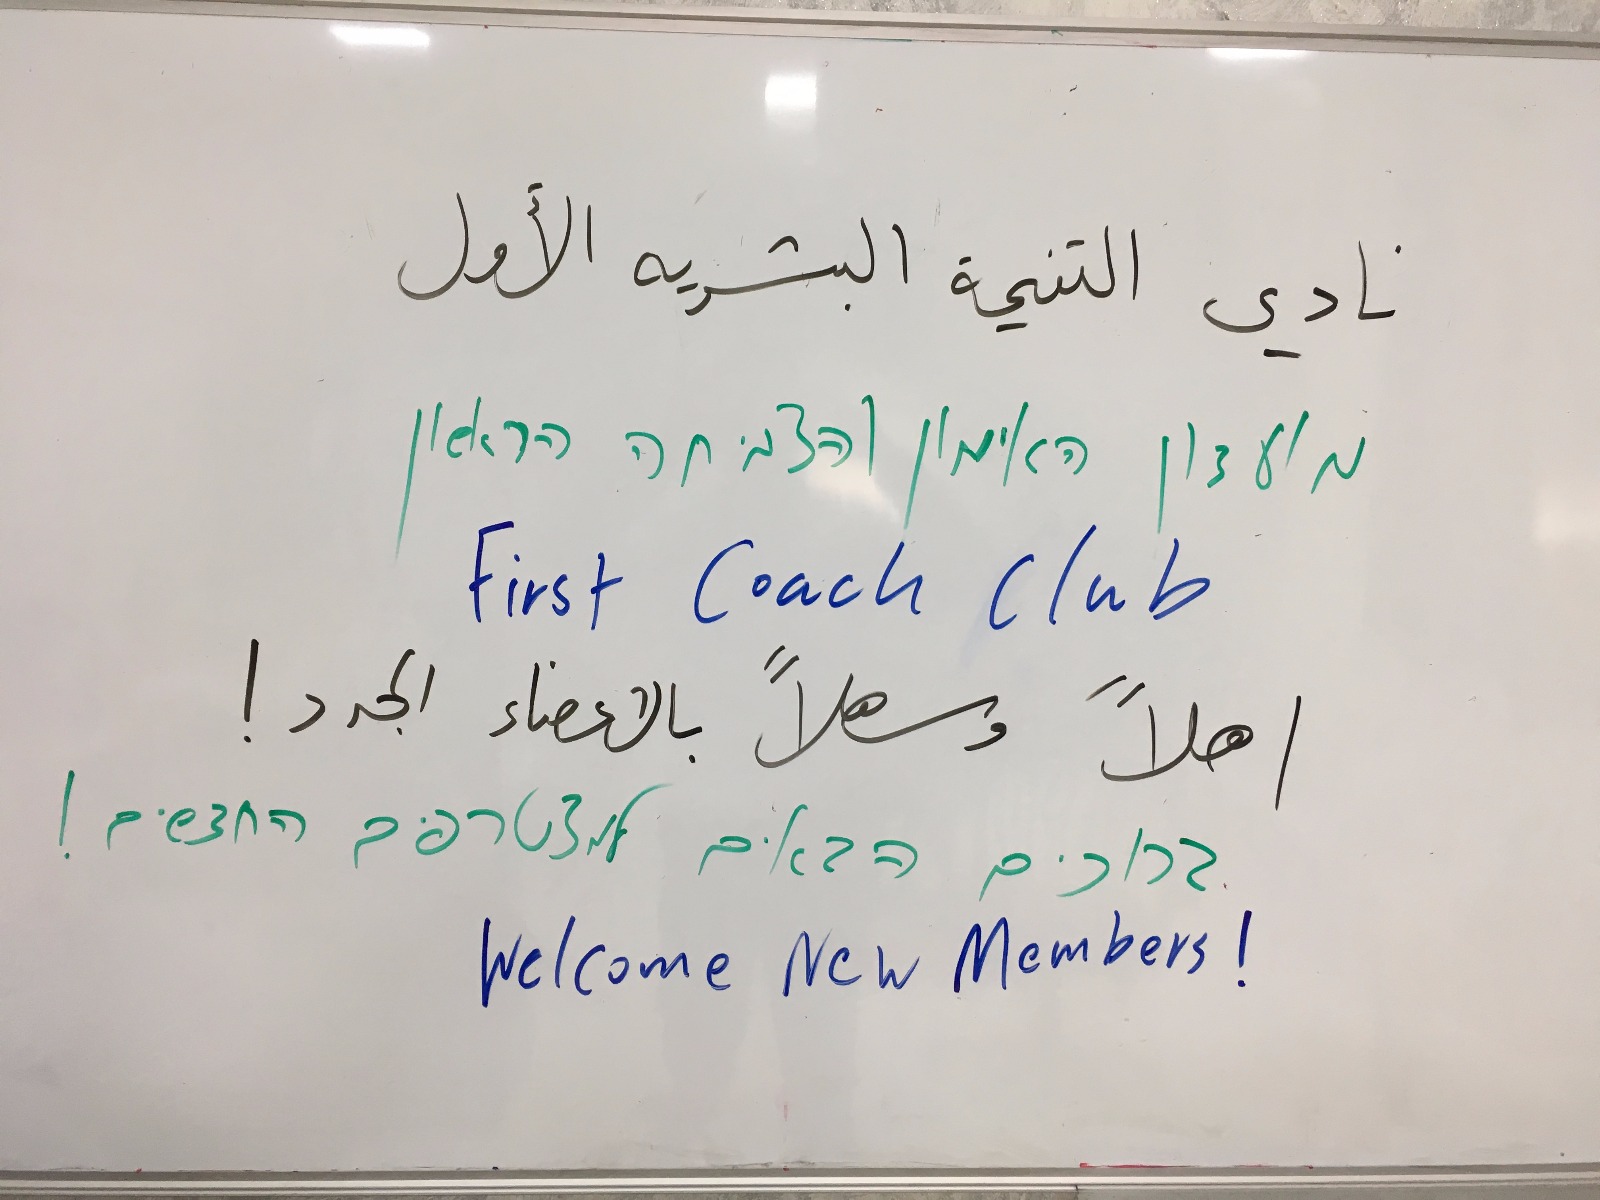 نادي التنمية البشريه الأول
מועדון האימון והצמיחה הראשון
First Coach Club
اهلاً وسهلاً بالاعضاء الجدد!
ברוכים הבאים למצטרפים החדשים!
Welcome New Members!